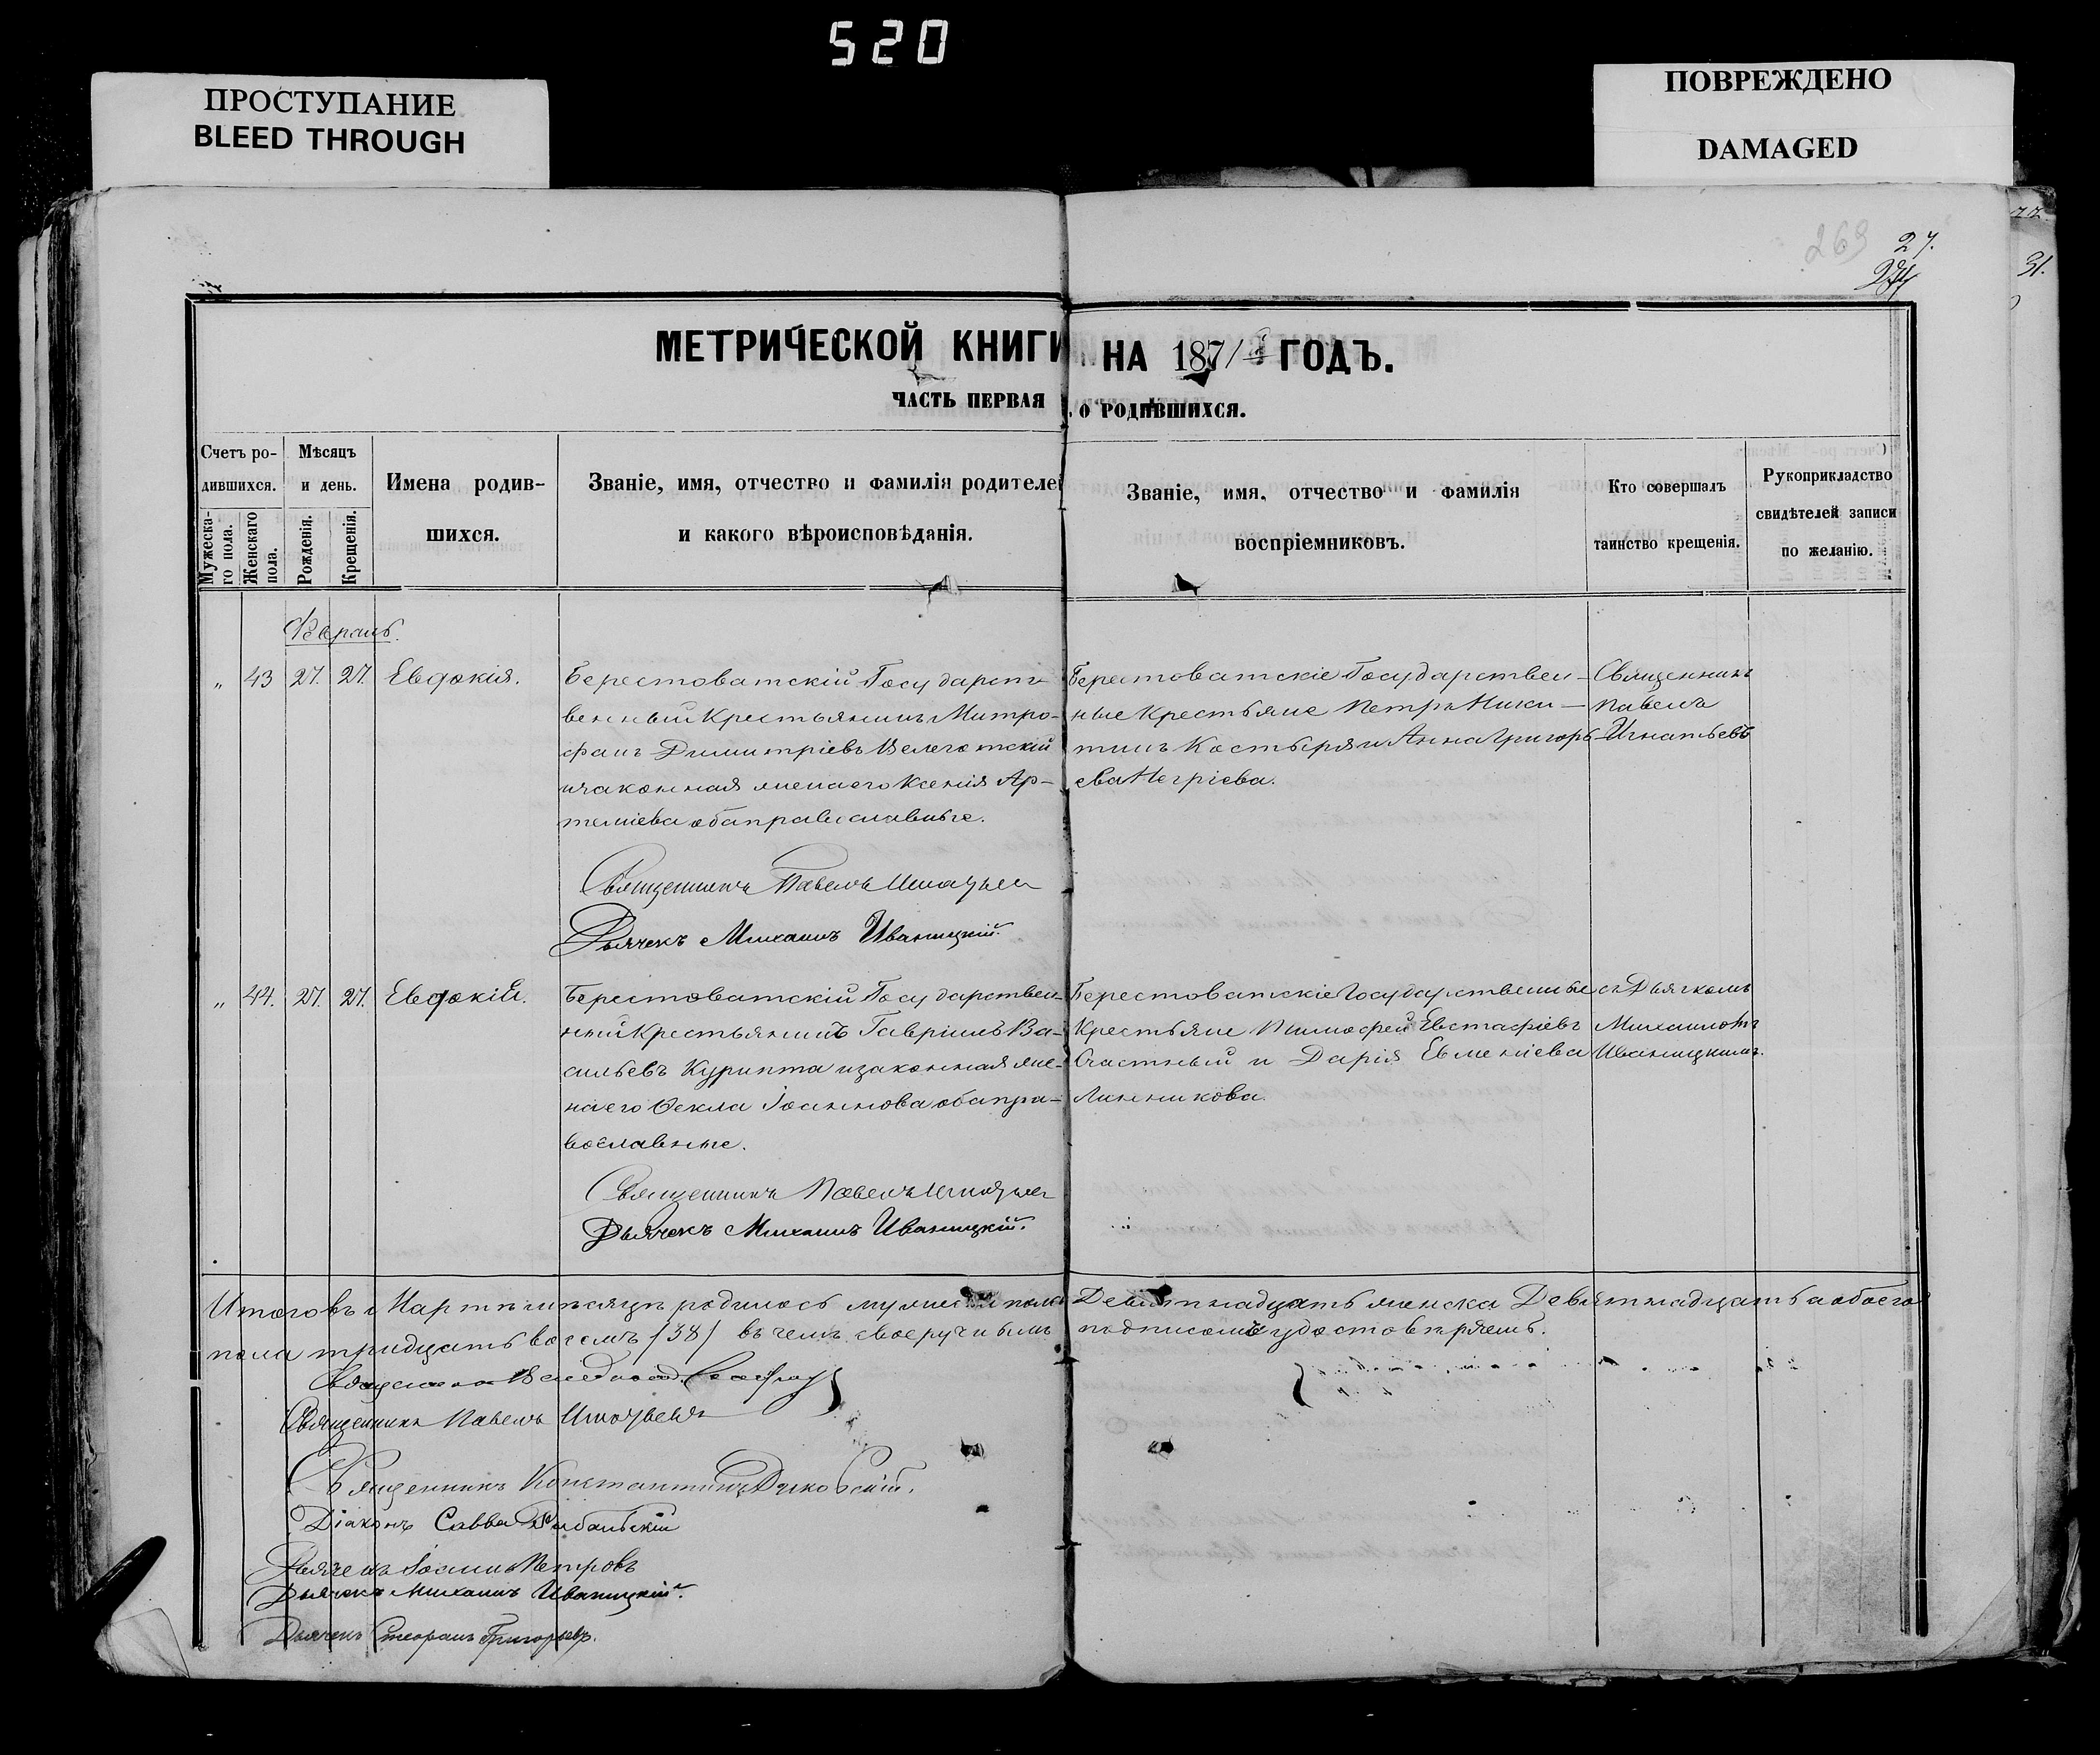 520
ПРОСТУПАНИЕ
BLEED THROUGH
ПОВРЕЖДЕНО
DAMAGED
269
27.
31.
МЕТРИЧЕСКОЙ КНИГИ НА 1871 ГОДЪ.
ЧАСТЬ ПЕРВАЯ, О РОДИВШИХСЯ.
Счетъ ро-
дившихся.
Мужеска-
го пола.
Женскаго
пола.
Мѣсяцъ
и день.
Рожденія.
Крещенія.
Имена родив-
шихся.
Званіе, имя, отчество и фамилія родителей
и какого вѣроисповѣданія.
Званіе, имя, отчество и фамилія
воспріемниковъ.
Кто совершалъ
таинство крещенія.
Рукоприкладство
свидѣтелей записи
по желанію.
„ 43 27. 27. Евдокія.
Берестоватскій Государст-
венный Крестьянинъ Митро-
фанъ Димитріевъ Велеготскій
и законная жена его Ксенія Ар-
теміева оба православные.
Священникъ Павелъ Игнатьев
Дьячекъ Михаилъ Иваницкій.
Берестоватскіе Государствен-
ные Крестьяне Петръ Ники-
тинъ Костыря и Анна Григорь-
ева Негріева.
Священникъ
Павелъ
Игнатьевъ
„ 44. 27. 27. Евдокія.
Берестоватскій Государствен-
ный Крестьянинъ Гавріилъ Ва-
сильевъ Курипта и законная же-
на его Ѳекла Іоаннова оба пра-
вославные.
Священникъ Павелъ Игнатьев
Дьячекъ Михаилъ Иваницкій.
Берестоватскіе Государственные
Крестьяне Тимофей Евстафіевъ
Счастный и Дарія Евменіева
Линникова.
съ Дьячкомъ
Михаиломъ
Иваницкимъ.
Итого въ Мартѣ мѣсяцѣ родилось мужеска пола Девятнадцать женска Девятнадцать а обоего
пола тридцать восемъ (38) въ чемъ своеручнымъ подписомъ удостовѣряемъ.
Священникъ Павелъ Игнатьевъ
Священникъ Константинъ
Діаконъ Савва
Дьячекъ Іоаннъ Петровъ
Дьячекъ Михаилъ Иваницкій.
Дьячекъ Стефанъ Григорьевъ.